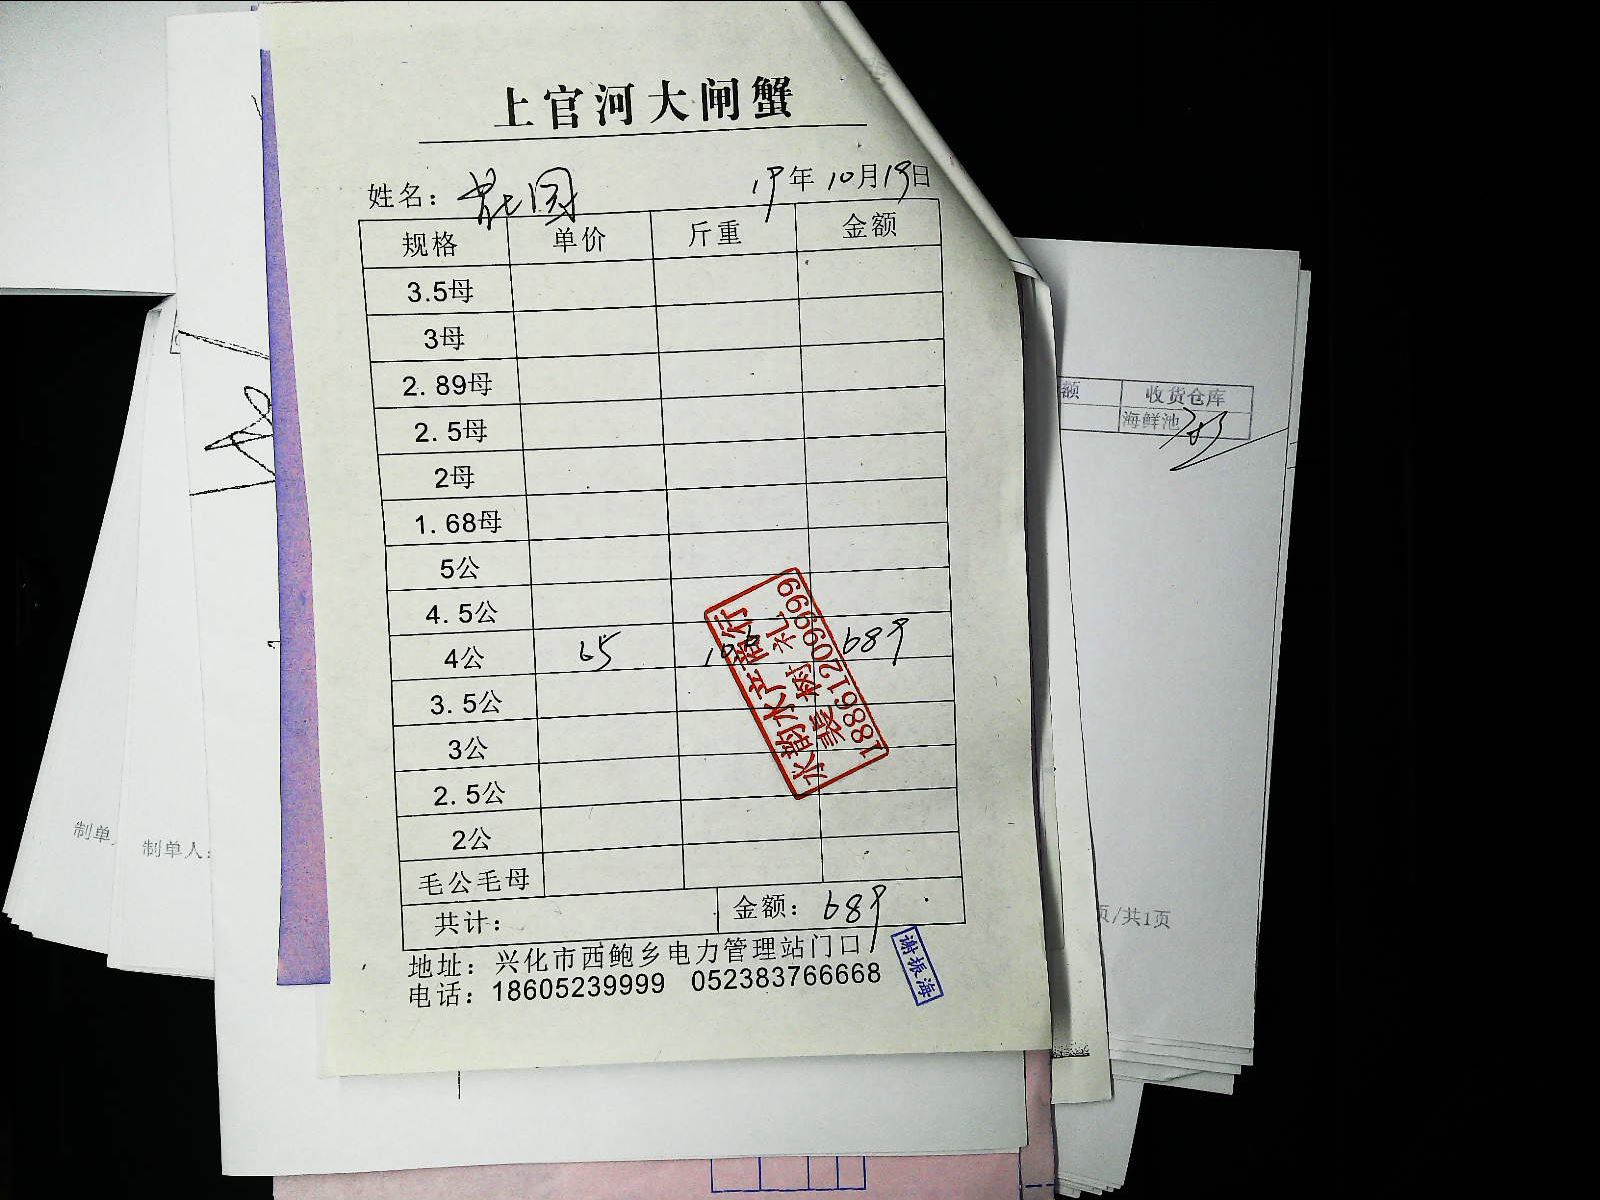 上官河大闸蟹
姓名： 19年10月19日
规格 单价 斤重 金额
3.5母
3母
2.89母
2.5母
2母
1.68母
5公
4.5公
4公 65 10.6 689
3.5公
3公
2.5公
2公
毛公毛母
共计： 金额：689
地址：兴化市西鲍乡电力管理站门口
电话：18605239999 052383766668
水韵水产商行
裴树礼
18861209999
谢振海
额 收货仓库
海鲜池
制单
制单人：
页/共1页